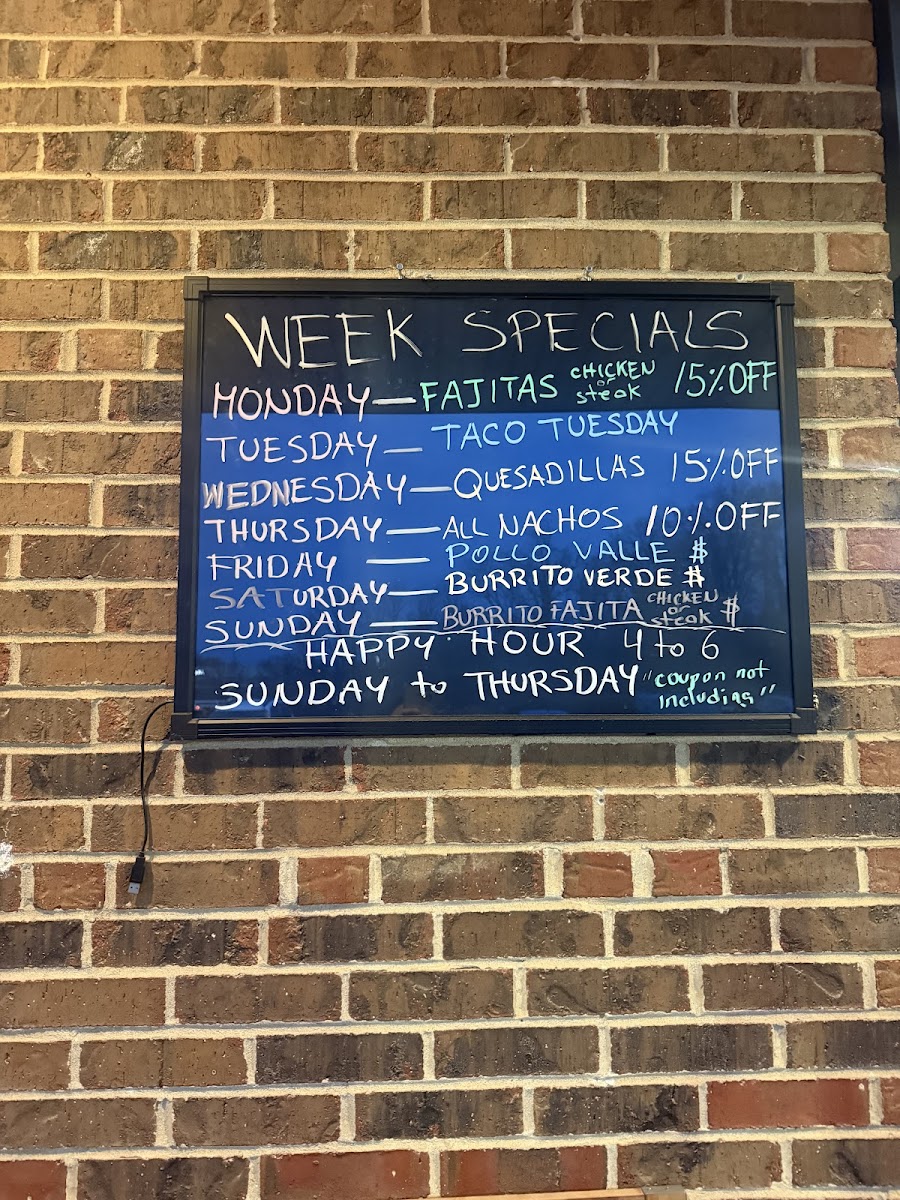 WEEK SPECIALS
MONDAY — FAJITAS CHICKEN or steak 15% OFF
TUESDAY — TACO TUESDAY
WEDNESDAY — QUESADILLAS 15% OFF
THURSDAY — ALL NACHOS 10% OFF
FRIDAY — POLLO VALLE $
SATURDAY — BURRITO VERDE $
SUNDAY — BURRITO FAJITA CHICKEN or steak $
HAPPY HOUR 4 to 6
SUNDAY to THURSDAY "coupon not including"